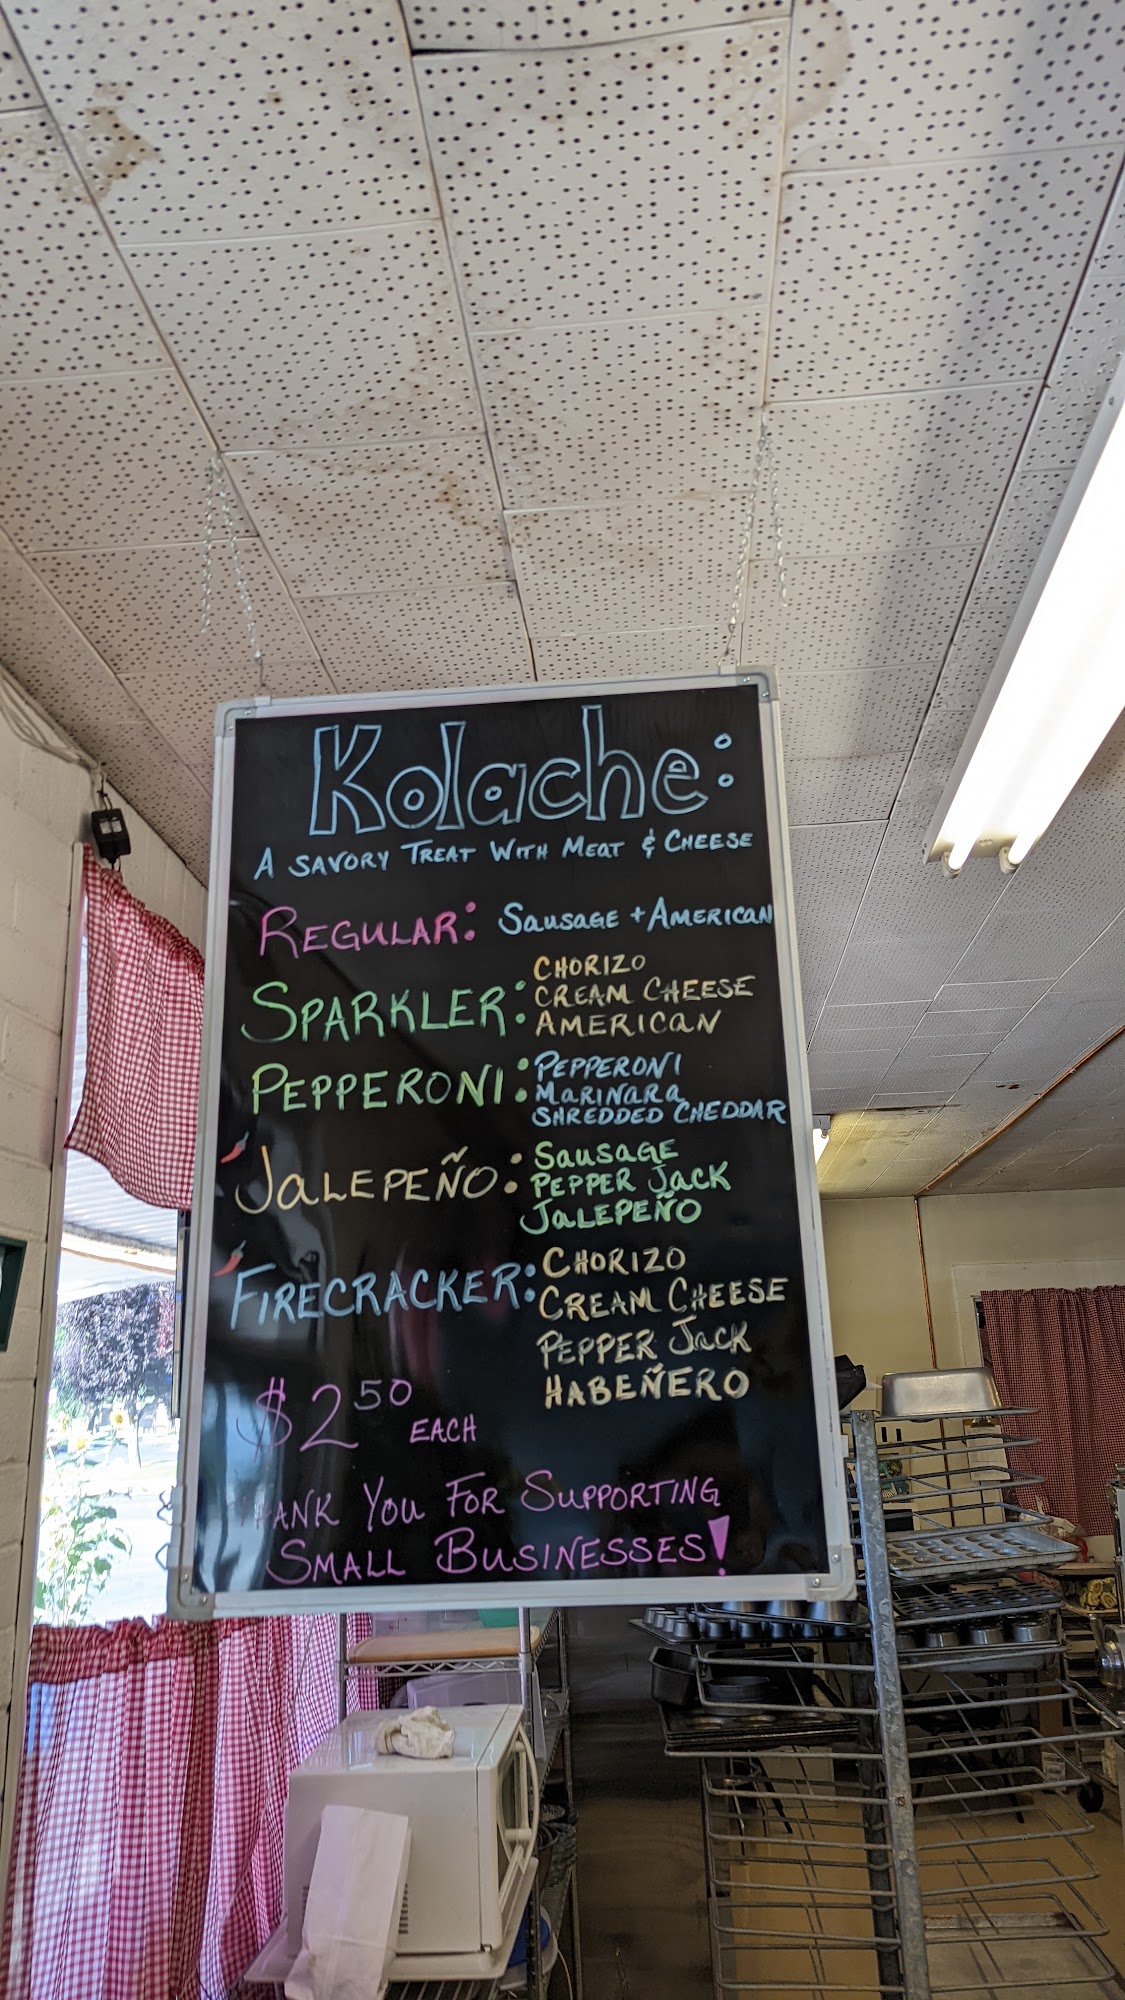 Kolache:
A SAVORY TREAT WITH MEAT & CHEESE
REGULAR: SAUSAGE + AMERICAN
SPARKLER: CHORIZO
CREAM CHEESE
AMERICAN
PEPPERONI: PEPPERONI
MARINARA
SHREDDED CHEDDAR
JALEPEÑO: SAUSAGE
PEPPER JACK
JALEPEÑO
FIRECRACKER: CHORIZO
CREAM CHEESE
PEPPER JACK
HABEÑERO
$2.50 EACH
THANK YOU FOR SUPPORTING
SMALL BUSINESSES!